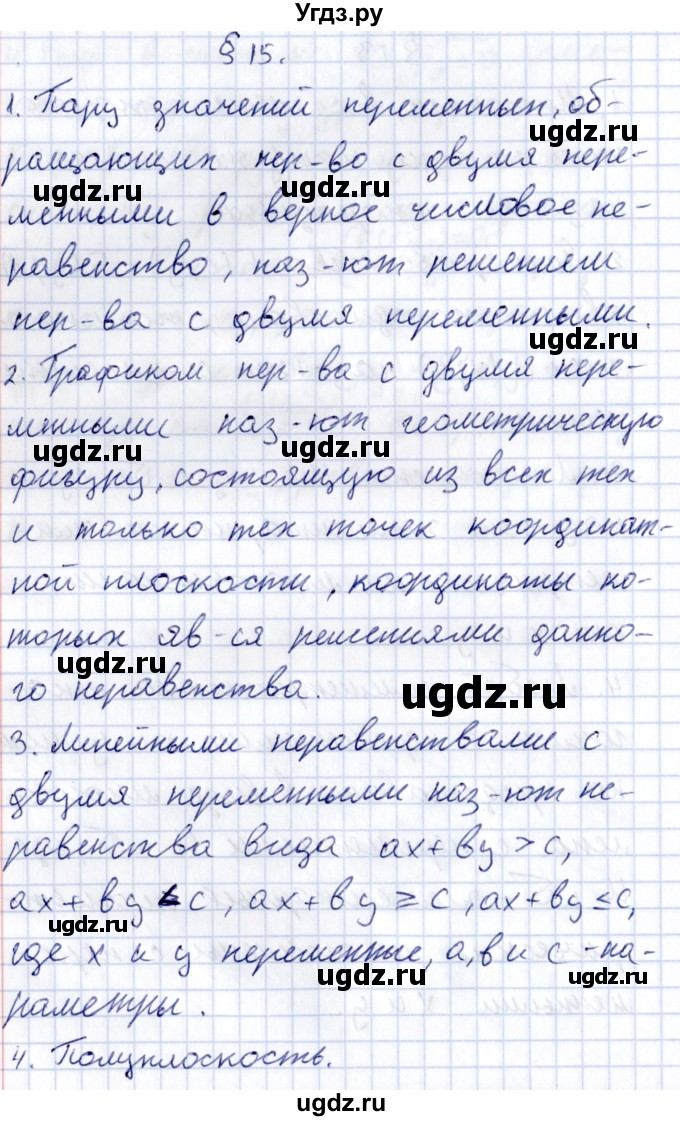 Угдз.ру
§ 15.
1. Пару значений переменных, об-
ращающих нер-во с двумя пере-
ugdz.ru ugdz.ru
менными в верное числовое не-
равенство, наз-ют решением
нер-ва с двумя переменными.
2. Графиком нер-ва с двумя пере-
менными наз-ют геометрическую
ugdz.ru ugdz.ru
фигуру, состоящую из всех тех
и только тех точек координат-
ной плоскости, координаты ко-
торых яв-ся решениями данно-
ugdz.ru ugdz.ru
го неравенства.
3. Линейными неравенствами с
двумя переменными наз-ют не-
равенства вида ax+by>c,
ax+by<c, ax+by≥c, ax+by≤c,
где x и y переменные, a, b и c - па-
ugdz.ru ugdz.ru
раметры.
4. Полуплоскость.
ugdz.ru